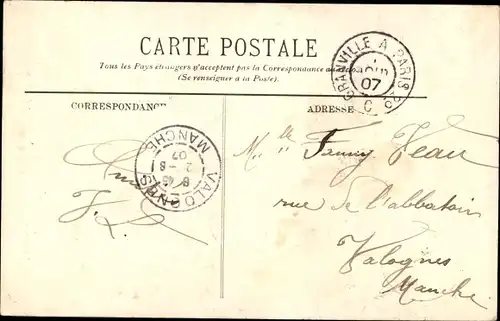 CARTE POSTALE
Tous les Pays étrangers n'acceptent pas la Correspondance au
(Se renseigner à la Poste).
CORRESPONDANCE
ADRESSE
GRANVILLE A PARIS
07
C
VALOGNES
MANCHE
8 45
2 - 8
07
Mlle Fanny Veau
rue de l'abbatoir
Valognes
Manche